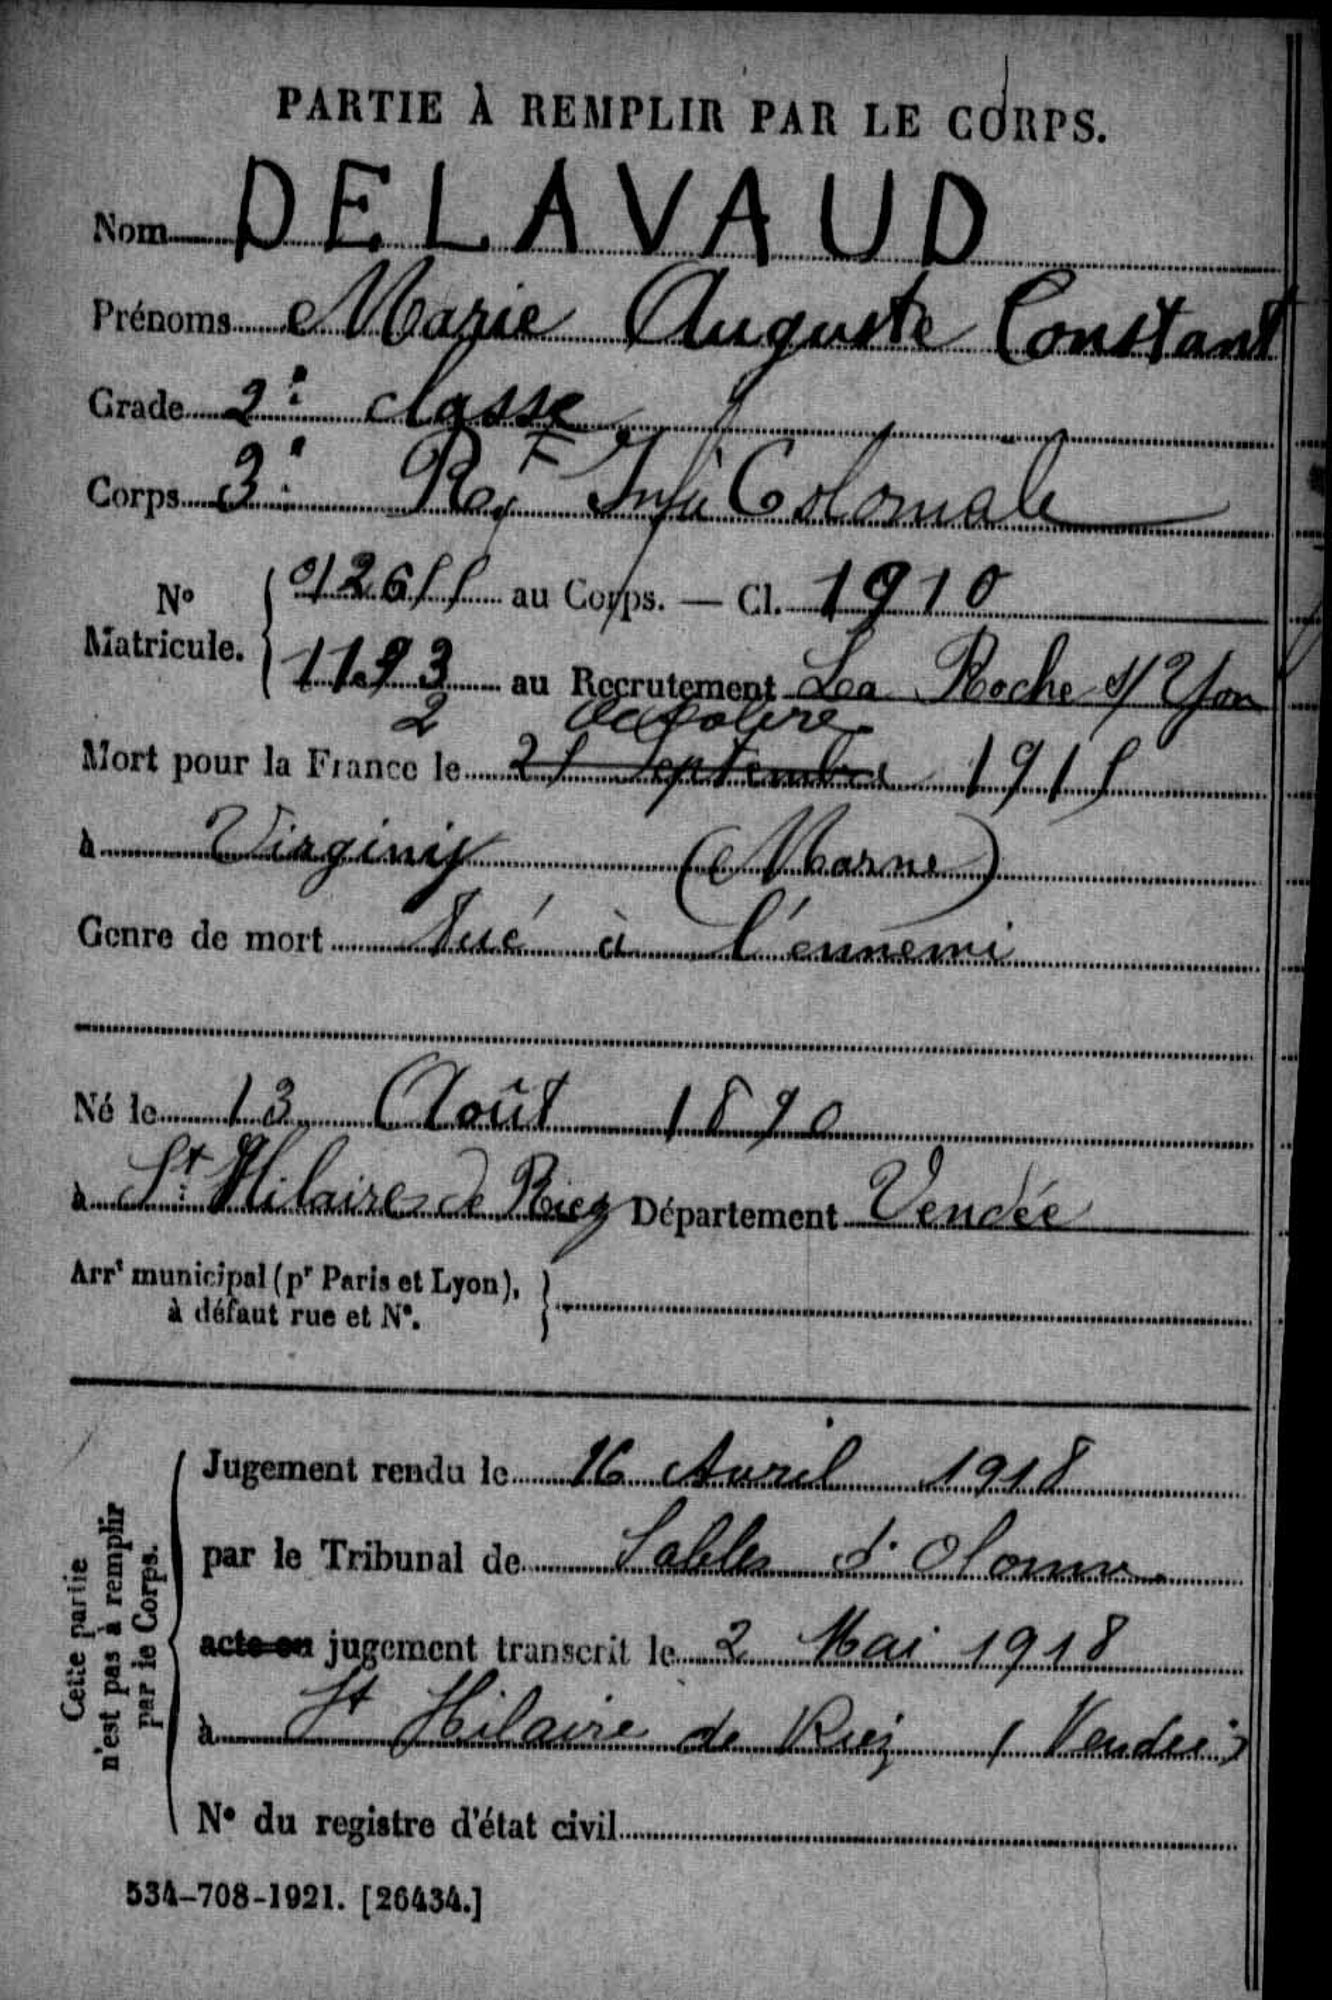 PARTIE À REMPLIR PAR LE CORPS.
Nom DELAVAUD
Prénoms Marie Auguste Constant
Grade 2e classe
Corps 3e Rgt Infie Coloniale
No Matricule. au Corps. — Cl. 1910
1193 au Recrutement La Roche s/ Yon
2 Octobre
Mort pour la France le 25 Septembre 1915
à Virginy (Marne)
Genre de mort Tué à l'ennemi
Né le 13 Août 1890
à St Hilaire de Riez Département Vendée
Arrt municipal (pr Paris et Lyon),
à défaut rue et No.
Cette partie
n'est pas à remplir
par le Corps.
Jugement rendu le 16 Avril 1918
par le Tribunal de Sables d'Olonne
acte ou jugement transcrit le 2 Mai 1918
à St Hilaire de Riez (Vendée)
No du registre d'état civil
534-708-1921. [26434.]